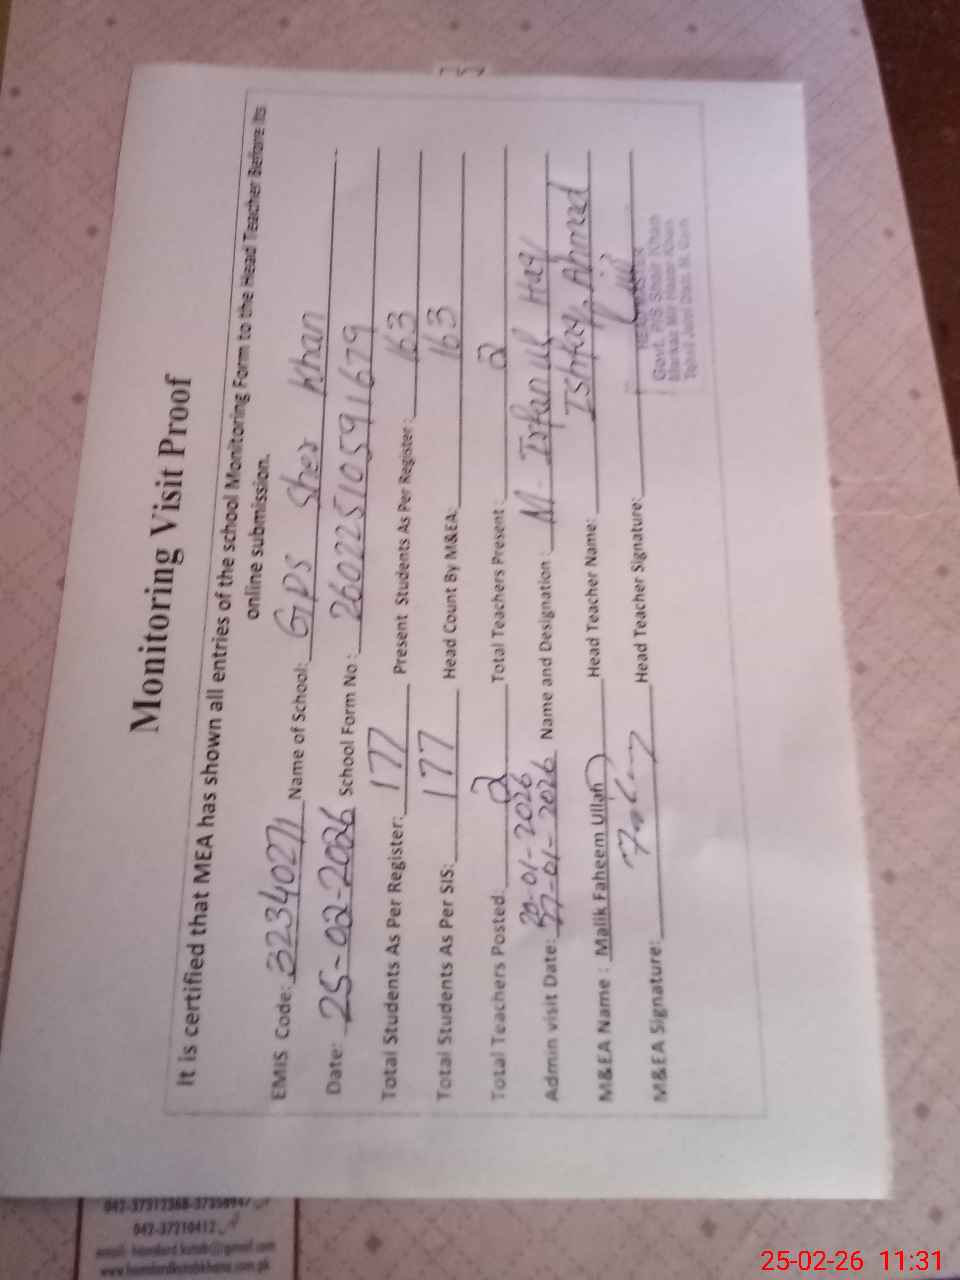 Monitoring Visit Proof
It is certified that MEA has shown all entries of the school Monitoring Form to the Head Teacher Before its
online submission.
EMIS Code: 32340271 Name of School: GPS Sher Khan
Date: 25-02-2026 School Form No: 26022510591679
Total Students As Per Register: 177 Present Students As Per Register: 163
Total Students As Per SIS: 177 Head Count By M&EA: 163
Total Teachers Posted: 2 Total Teachers Present: 2
20-01-2026
Admin visit Date: 27-01-2026 Name and Designation: M. Irfan ul Haq
M&EA Name: Malik Faheem Ullah Head Teacher Name: Ishfaq Ahmed
M&EA Signature: Head Teacher Signature:
Govt. P/S Sher Khan
042-37210412
25-02-26 11:31